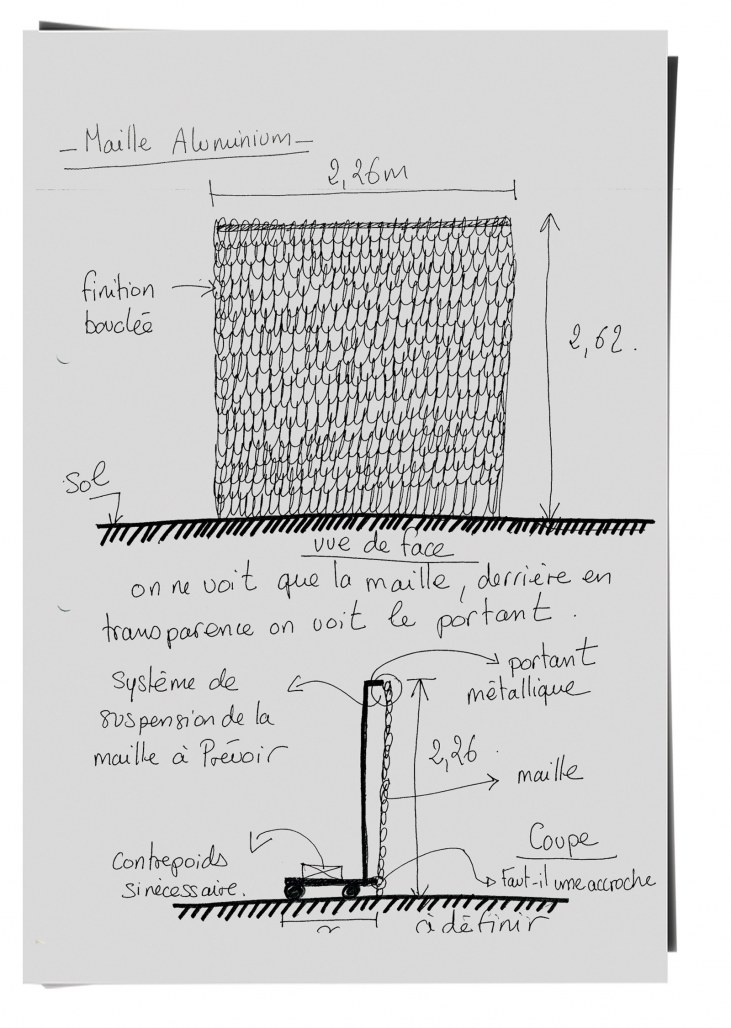 - Maille Aluminium -
2,26m
finition
bouclée
2,62.
sol
vue de face
on ne voit que la maille, derrière en
transparence on voit le portant.
Système de
suspension de la
maille à Prévoir
portant
métallique
2,26.
maille
Coupe
Contrepoids
si nécessaire.
Faut-il une accroche
à définir